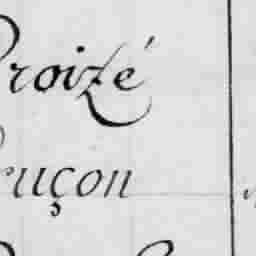 roizé
uçon